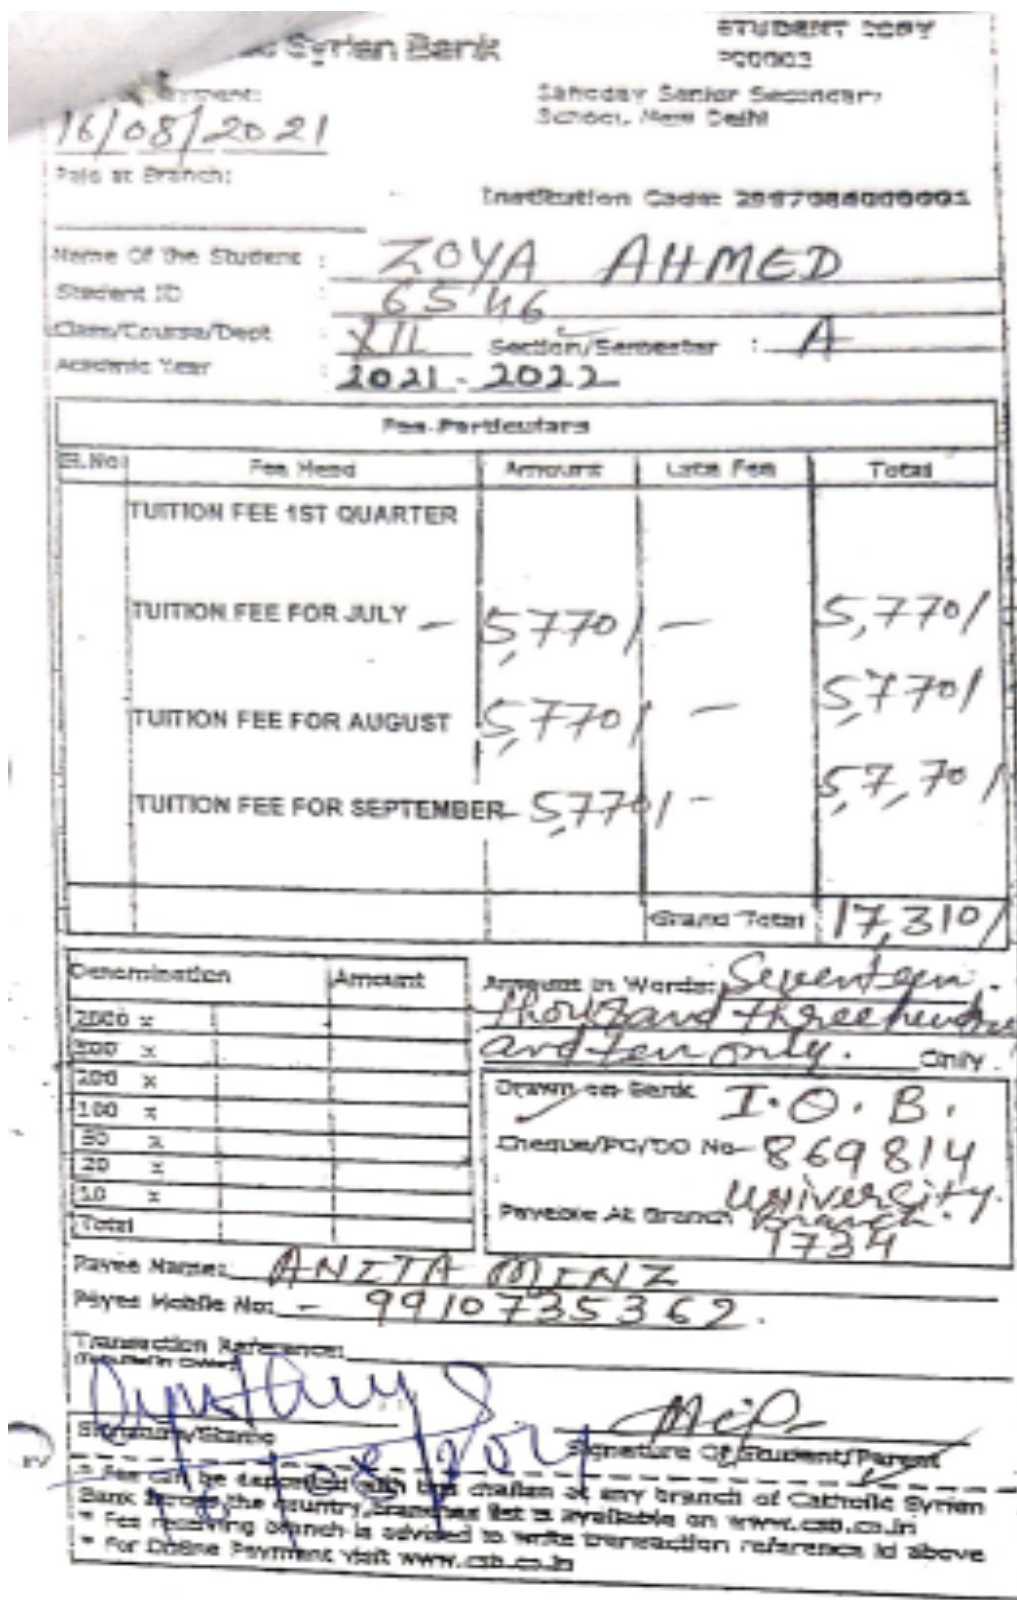 Syrian Bank
STUDENT COPY
Sahoday Senior Secondary
School, New Delhi
16/08/2021
Paid at Branch:
Institution Code:
Name Of the Student : ZOYA AHMED
Student ID : 6546
Class/Course/Dept : XII Section/Semester : A
Academic Year : 2021-2022
Fee-Particulars
Sl.No: Fee Head Amount Late Fee Total
TUITION FEE 1ST QUARTER
TUITION FEE FOR JULY - 5,770/ - 5,770/
TUITION FEE FOR AUGUST 5,770/ - 5,770/
TUITION FEE FOR SEPTEMBER - 5,770/ - 5,7,70/
Grand Total 17,310/
Denomination Amount
2000 x
500 x
200 x
100 x
50 x
20 x
10 x
Total
Amount in Words: Seventeen
thousand three hundred
and ten only. Only.
Drawn on Bank I.O.B.
Cheque/PC/DD No- 869814
Payable At Branch University
Branch.
1734
Payee Name: ANITA MINZ
Payee Mobile No: - 9910735362.
Transaction Reference:
Signature/Stamp
Signature Of Student/Parent
* Fee can be deposited with this challan at any branch of Catholic Syrian
Bank across the country, branches list is available on www.csb.co.in
* Fee receiving branch is advised to write transaction reference id above
* For Online Payment visit www.csb.co.in